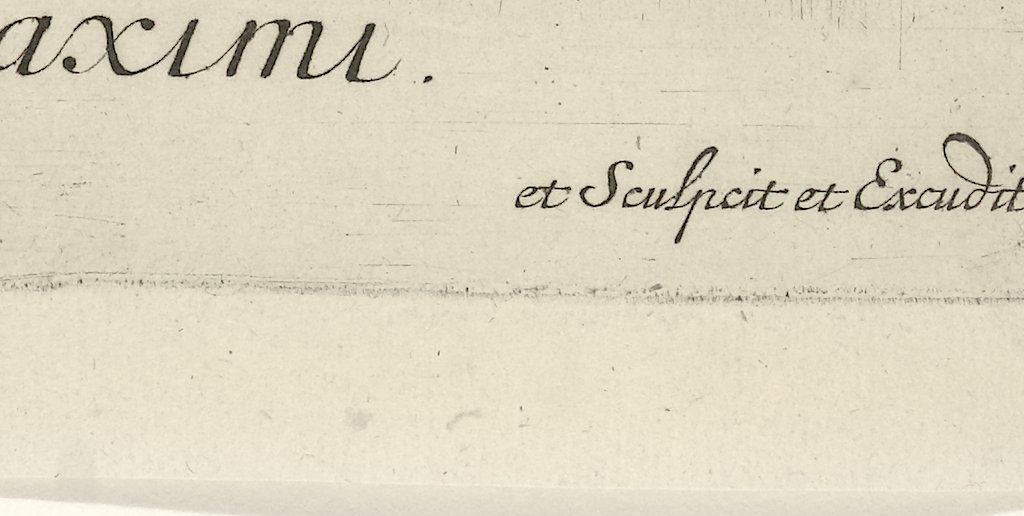 aximi.
et Sculpcit et Excudit